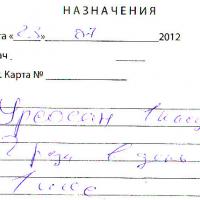 НАЗНАЧЕНИЯ
та « 23 » 07 2012
ач
. Карта №
Урсосан 1
2 раза в день
1 мес